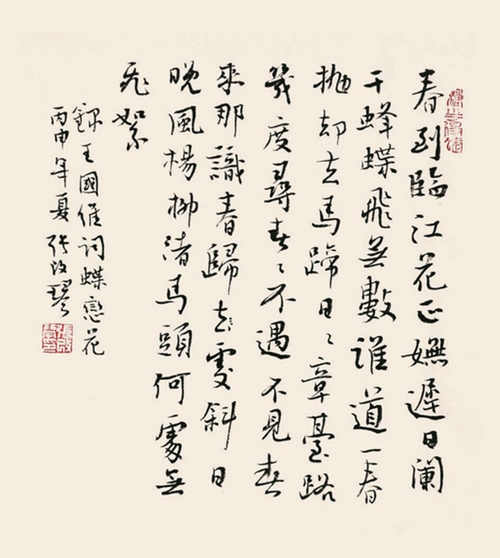 春到臨江花正嫵遲日闌
干蜂蝶飛無數誰道一春
抛却去馬蹄日〻章臺路
幾度尋春〻不遇不見春
來那識春歸去處斜日
晚風楊柳渚馬頭何處無
飛絮
録王國維詞蝶戀花
丙申年夏張改琴